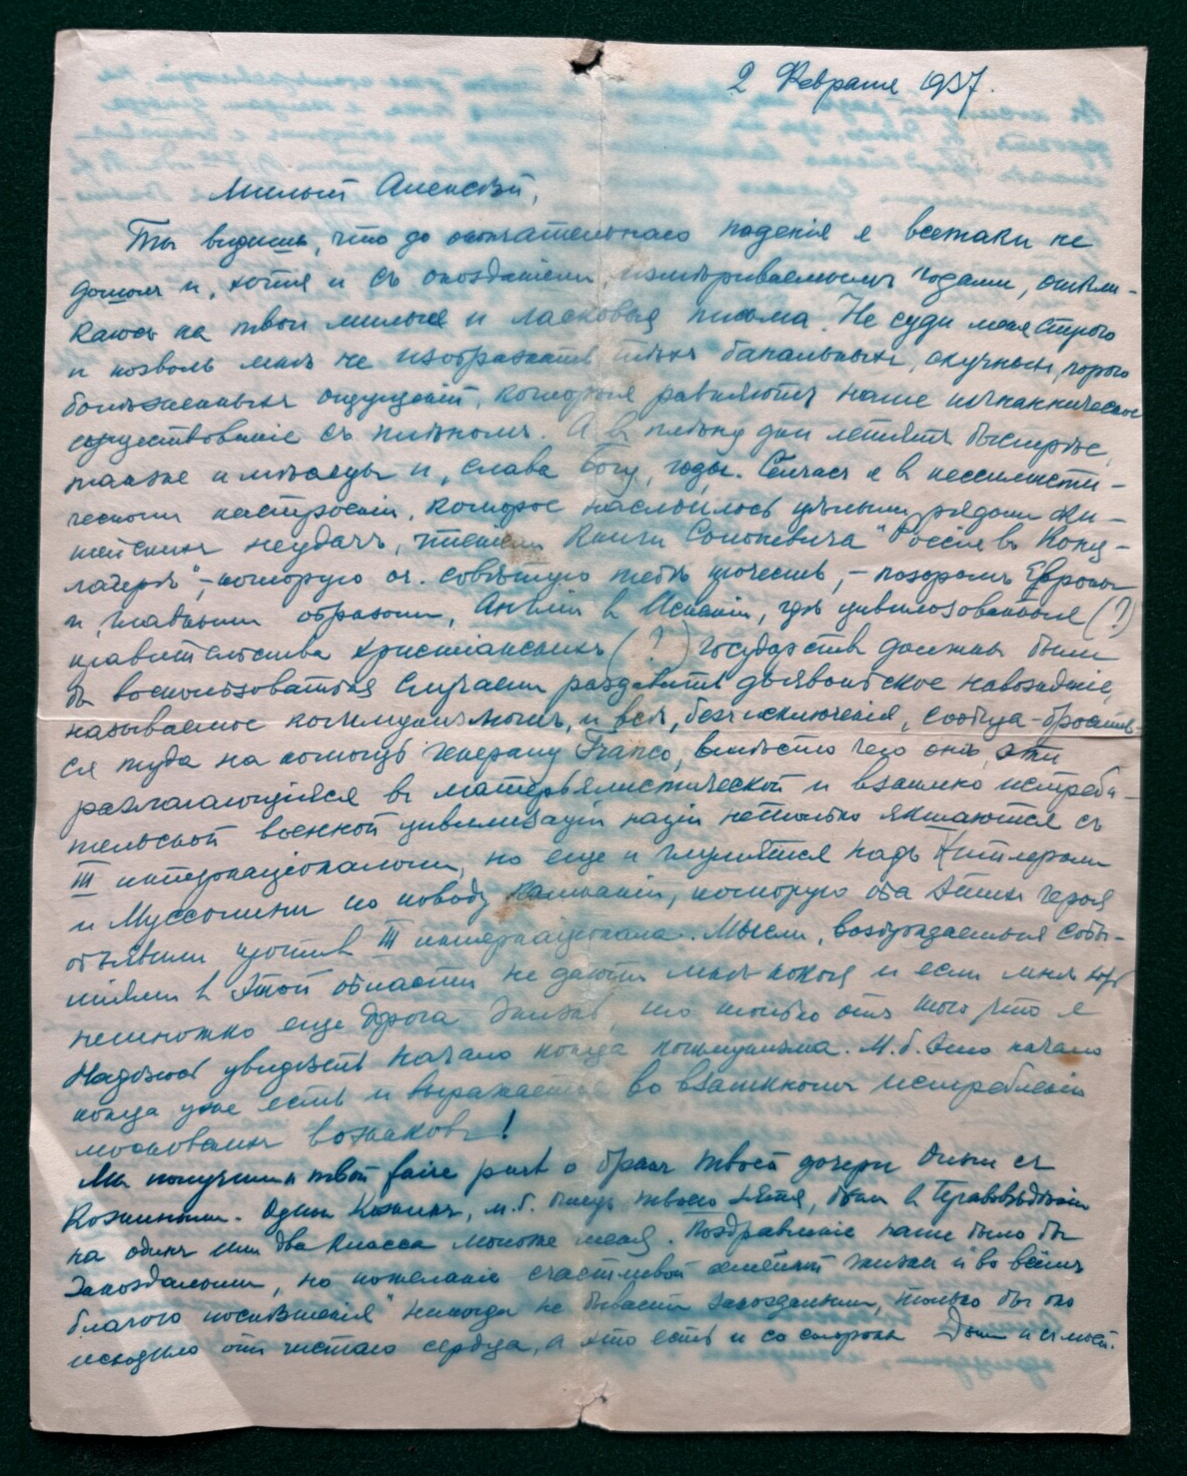 2 Февраля 1937.
Милый Алексѣй,
Ты видишь, что до окончательнаго паденія я всетаки не
дошелъ и, хотя и съ опозданіемъ, измѣриваемымъ годами, откли-
каюсь на твои милыя и ласковыя письма. Не суди меня строго
и позволь мнѣ не изображать тѣхъ банальныхъ, скучныхъ, порою
болѣзненныхъ ощущеній, которыя равняютъ наше изгнанническое
существованіе съ плѣномъ. А въ плѣну дни летятъ быстрѣе,
также и мѣсяцы и, слава Богу, годы. Сейчасъ я въ пессимисти-
ческомъ настроеніи, которое наслоилось цѣлымъ рядомъ жи-
тейскихъ неудачъ, чтеніемъ книги Солоневича "Россія въ конц-
лагерѣ", – которую оч. совѣтую тебѣ прочесть, – позоромъ Европы
и, главнымъ образомъ, Англіи въ Испаніи, гдѣ цивилизованныя (?)
правительства христіанскихъ (?) государствъ должны были
бы воспользоваться случаемъ раздавить дьявольское навожденіе,
называемое коммунизмомъ, и всѣ, безъ исключенія, сообща – бросить-
ся туда на помощь генералу Franco, вмѣсто чего онѣ, эти
разлагающіяся въ матерьялистической и взаимно истреби-
тельской военной цивилизаціи націи нетолько якшаются съ
III интернаціоналомъ, но еще и глумятся надъ Хитлеромъ
и Муссолини по поводу кампаніи, которую оба этихъ героя
объявили противъ III интернаціонала. Мысли, возбуждаемыя собы-
тіями въ этой области не даютъ мнѣ покоя и если мнѣ
немножко еще дорога жизнь, то только отъ того что я
надѣюсь увидѣть начало конца коммунизма. М.б. это начало
конца уже есть и выражается во взаимномъ истребленіи
московскихъ вожаковъ!
Мы получили твой faire part о бракѣ твоей дочери съ
Кожинымъ. Одинъ Кожинъ, м.б. отецъ твоего зятя, былъ въ Правовѣдѣніи
на одинъ или два класса моложе меня. Поздравленіе наше было бы
запоздалымъ, но пожеланіе счастливой жизни и "во всѣмъ
благого поспѣшенія" никогда не бываетъ запоздалымъ, только бы оно
исходило отъ чистаго сердца, а это есть и со стороны и съ моей.